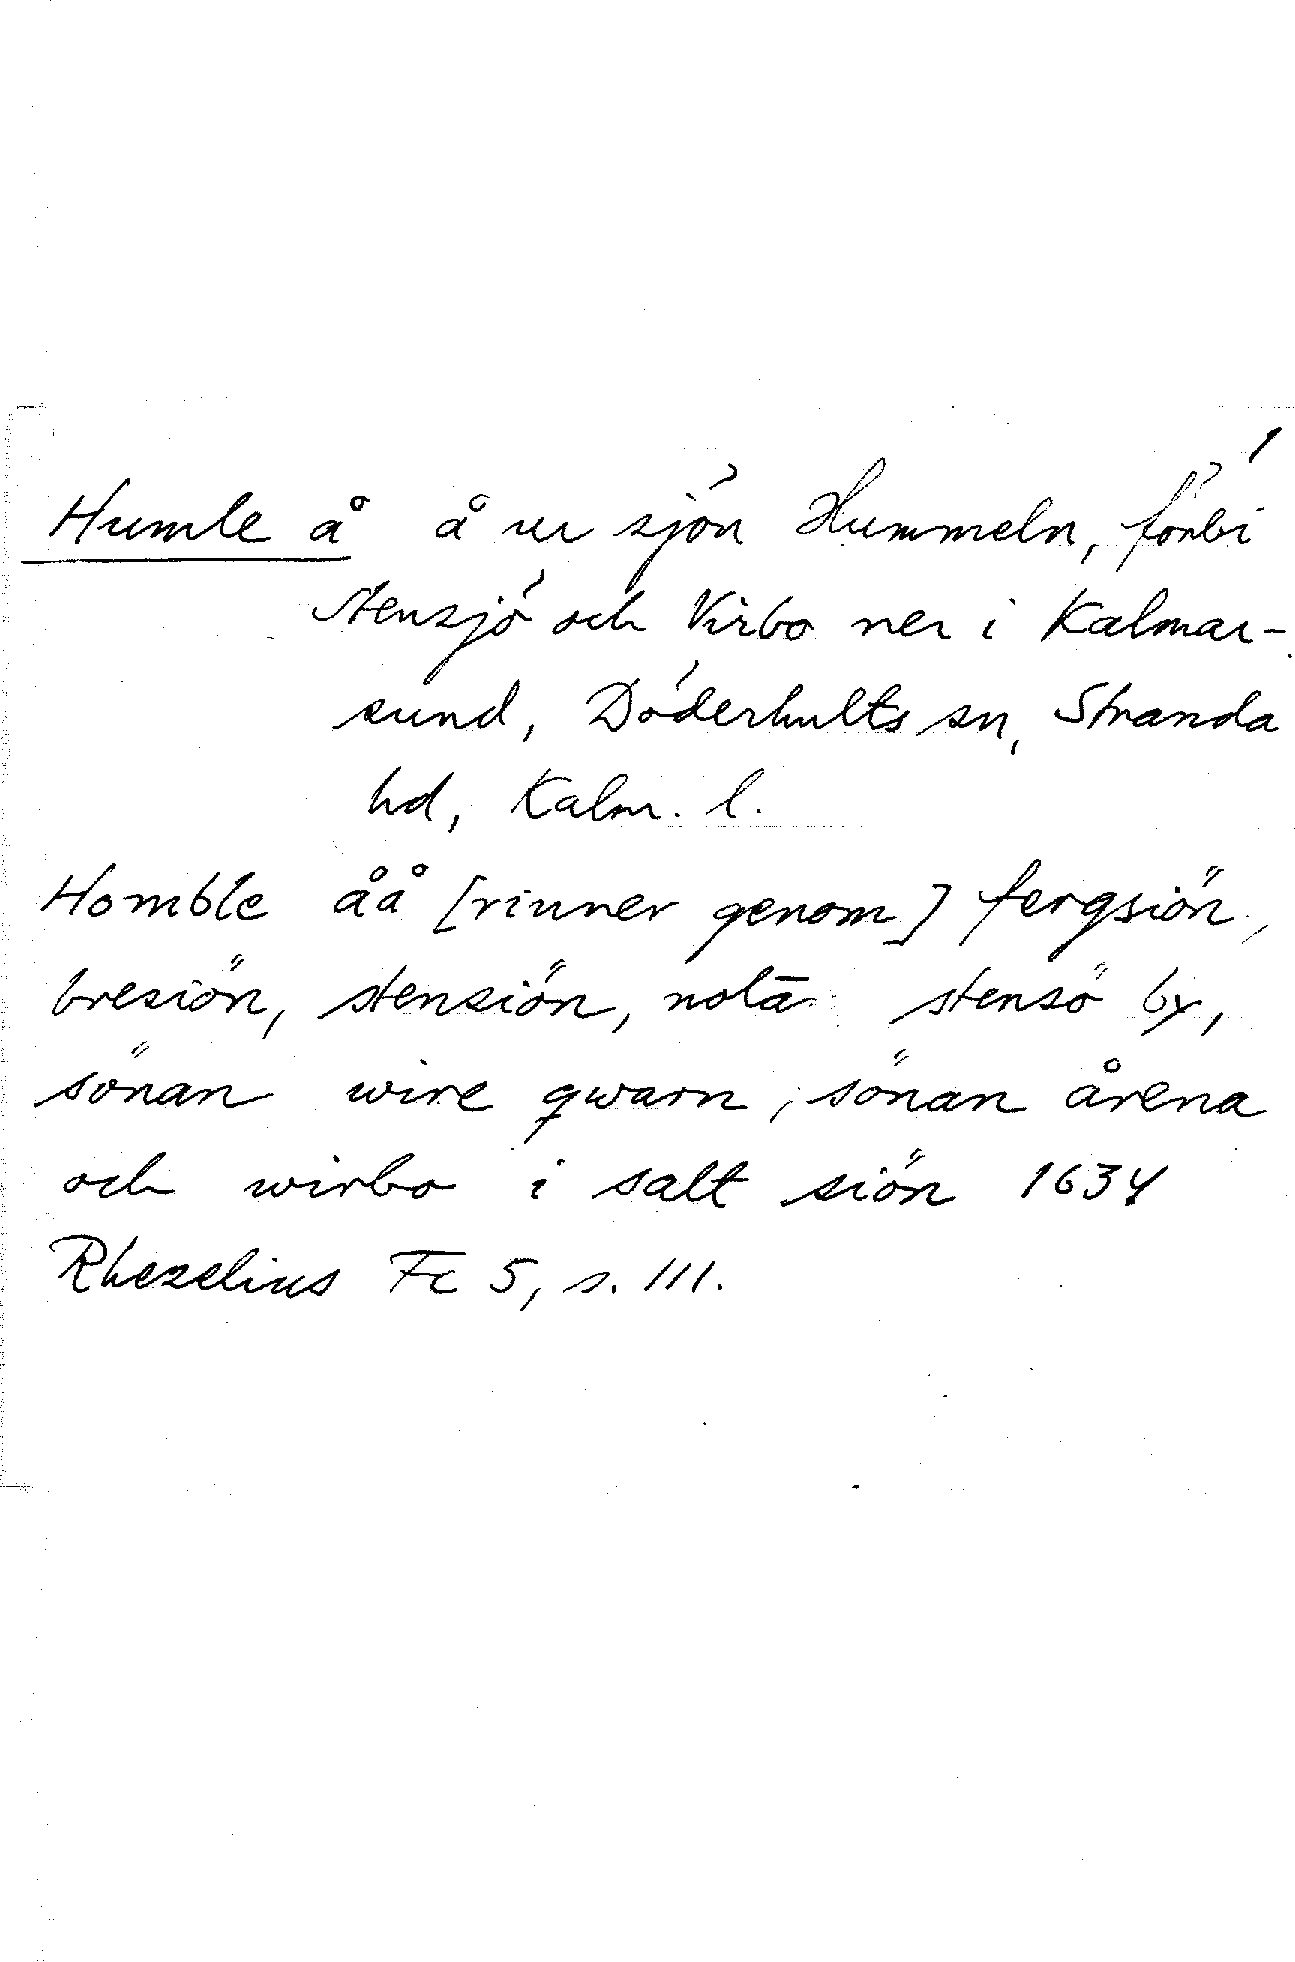 1
Humle å å ur sjön Hummeln, förbi
Stensjö och Virbo ner i Kalmar-
sund, Döderhults sn, Stranda
hd, Kalm. l.
Homble åå [rinner genom] fergsiön,
bresiön, stensiön, nolā stensö by,
sönan wire qwarn, sönan årena
och wirbo i salt siön 1634
Rhezelius Fc 5, s. 111.